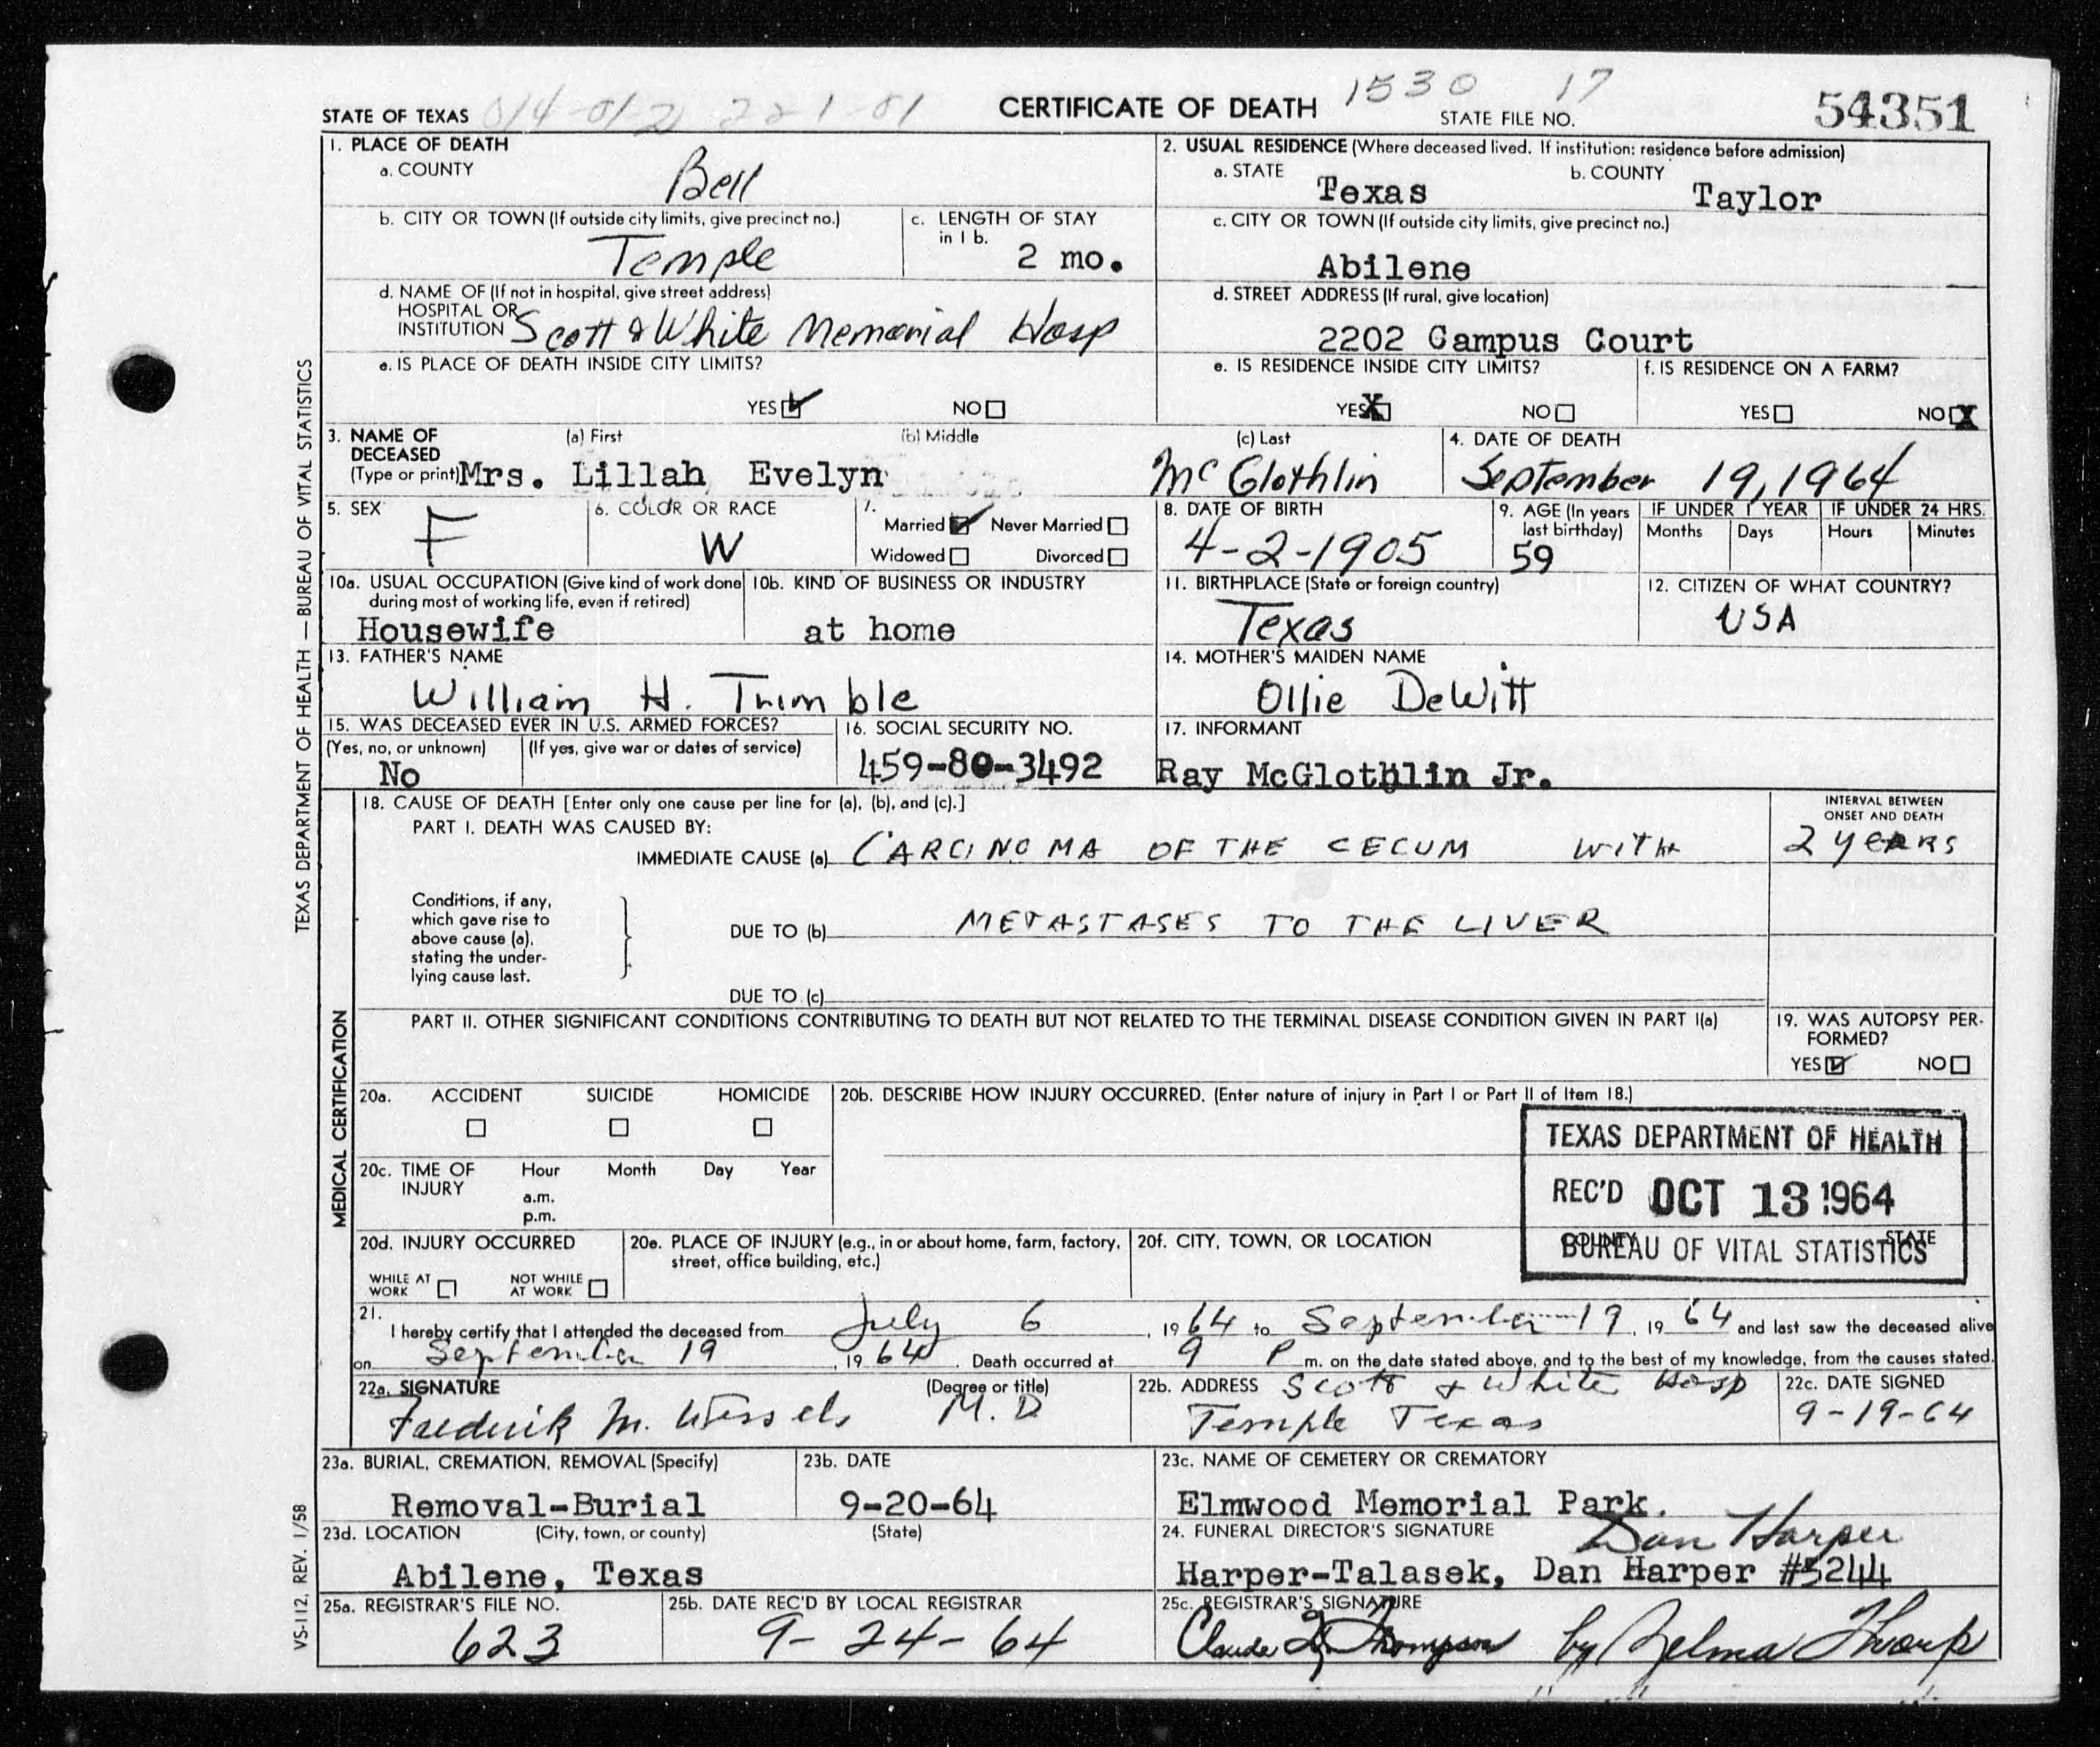 STATE OF TEXAS CERTIFICATE OF DEATH 1530 17 STATE FILE NO. 54351
1. PLACE OF DEATH
a. COUNTY Bell
b. CITY OR TOWN (If outside city limits, give precinct no.) Temple
c. LENGTH OF STAY in 1 b. 2 mo.
d. NAME OF (If not in hospital, give street address)
HOSPITAL OR
INSTITUTION Scott & White Memorial Hosp
e. IS PLACE OF DEATH INSIDE CITY LIMITS?
YES NO
2. USUAL RESIDENCE (Where deceased lived. If institution: residence before admission)
a. STATE Texas b. COUNTY Taylor
c. CITY OR TOWN (If outside city limits, give precinct no.)
Abilene
d. STREET ADDRESS (If rural, give location)
2202 Campus Court
e. IS RESIDENCE INSIDE CITY LIMITS? f. IS RESIDENCE ON A FARM?
YES X NO YES NO X
3. NAME OF DECEASED (Type or print) (a) First (b) Middle (c) Last
Mrs. Lillah Evelyn McGlothlin
4. DATE OF DEATH
September 19, 1964
5. SEX F
6. COLOR OR RACE W
7. Married Never Married
Widowed Divorced
8. DATE OF BIRTH 4-2-1905
9. AGE (In years last birthday) 59
IF UNDER 1 YEAR IF UNDER 24 HRS.
Months Days Hours Minutes
10a. USUAL OCCUPATION (Give kind of work done during most of working life, even if retired)
Housewife
10b. KIND OF BUSINESS OR INDUSTRY
at home
11. BIRTHPLACE (State or foreign country)
Texas
12. CITIZEN OF WHAT COUNTRY?
USA
13. FATHER'S NAME
William H. Trimble
14. MOTHER'S MAIDEN NAME
Ollie DeWitt
15. WAS DECEASED EVER IN U.S. ARMED FORCES?
(Yes, no, or unknown) (If yes, give war or dates of service)
No
16. SOCIAL SECURITY NO.
459-80-3492
17. INFORMANT
Ray McGlothlin Jr.
MEDICAL CERTIFICATION
18. CAUSE OF DEATH [Enter only one cause per line for (a), (b), and (c).]
INTERVAL BETWEEN ONSET AND DEATH
PART I. DEATH WAS CAUSED BY:
IMMEDIATE CAUSE (a) CARCINOMA OF THE CECUM WITH 2 years
Conditions, if any,
which gave rise to
above cause (a),
stating the under-
lying cause last.
DUE TO (b) METASTASES TO THE LIVER
DUE TO (c)
PART II. OTHER SIGNIFICANT CONDITIONS CONTRIBUTING TO DEATH BUT NOT RELATED TO THE TERMINAL DISEASE CONDITION GIVEN IN PART I(a)
19. WAS AUTOPSY PER-FORMED?
YES NO
20a. ACCIDENT SUICIDE HOMICIDE
20b. DESCRIBE HOW INJURY OCCURRED. (Enter nature of injury in Part I or Part II of Item 18.)
20c. TIME OF INJURY Hour Month Day Year
a.m.
p.m.
TEXAS DEPARTMENT OF HEALTH
REC'D OCT 13 1964
BUREAU OF VITAL STATISTICS
20d. INJURY OCCURRED
WHILE AT WORK NOT WHILE AT WORK
20e. PLACE OF INJURY (e.g., in or about home, farm, factory, street, office building, etc.)
20f. CITY, TOWN, OR LOCATION COUNTY STATE
21.
I hereby certify that I attended the deceased from July 6, 1964 to September 19, 1964 and last saw the deceased alive
on September 19, 1964. Death occurred at 9 P m. on the date stated above, and to the best of my knowledge, from the causes stated.
22a. SIGNATURE (Degree or title)
Frederick M. Wessels M.D
22b. ADDRESS Scott & White Hosp
Temple Texas
22c. DATE SIGNED
9-19-64
23a. BURIAL, CREMATION, REMOVAL (Specify)
Removal-Burial
23b. DATE
9-20-64
23c. NAME OF CEMETERY OR CREMATORY
Elmwood Memorial Park.
23d. LOCATION (City, town, or county) (State)
Abilene, Texas
24. FUNERAL DIRECTOR'S SIGNATURE Dan Harper
Harper-Talasek, Dan Harper #5244
25a. REGISTRAR'S FILE NO.
623
25b. DATE REC'D BY LOCAL REGISTRAR
9-24-64
25c. REGISTRAR'S SIGNATURE
Claude Thompson by Zelma Tharp
TEXAS DEPARTMENT OF HEALTH — BUREAU OF VITAL STATISTICS
VS-112, REV. 1/58